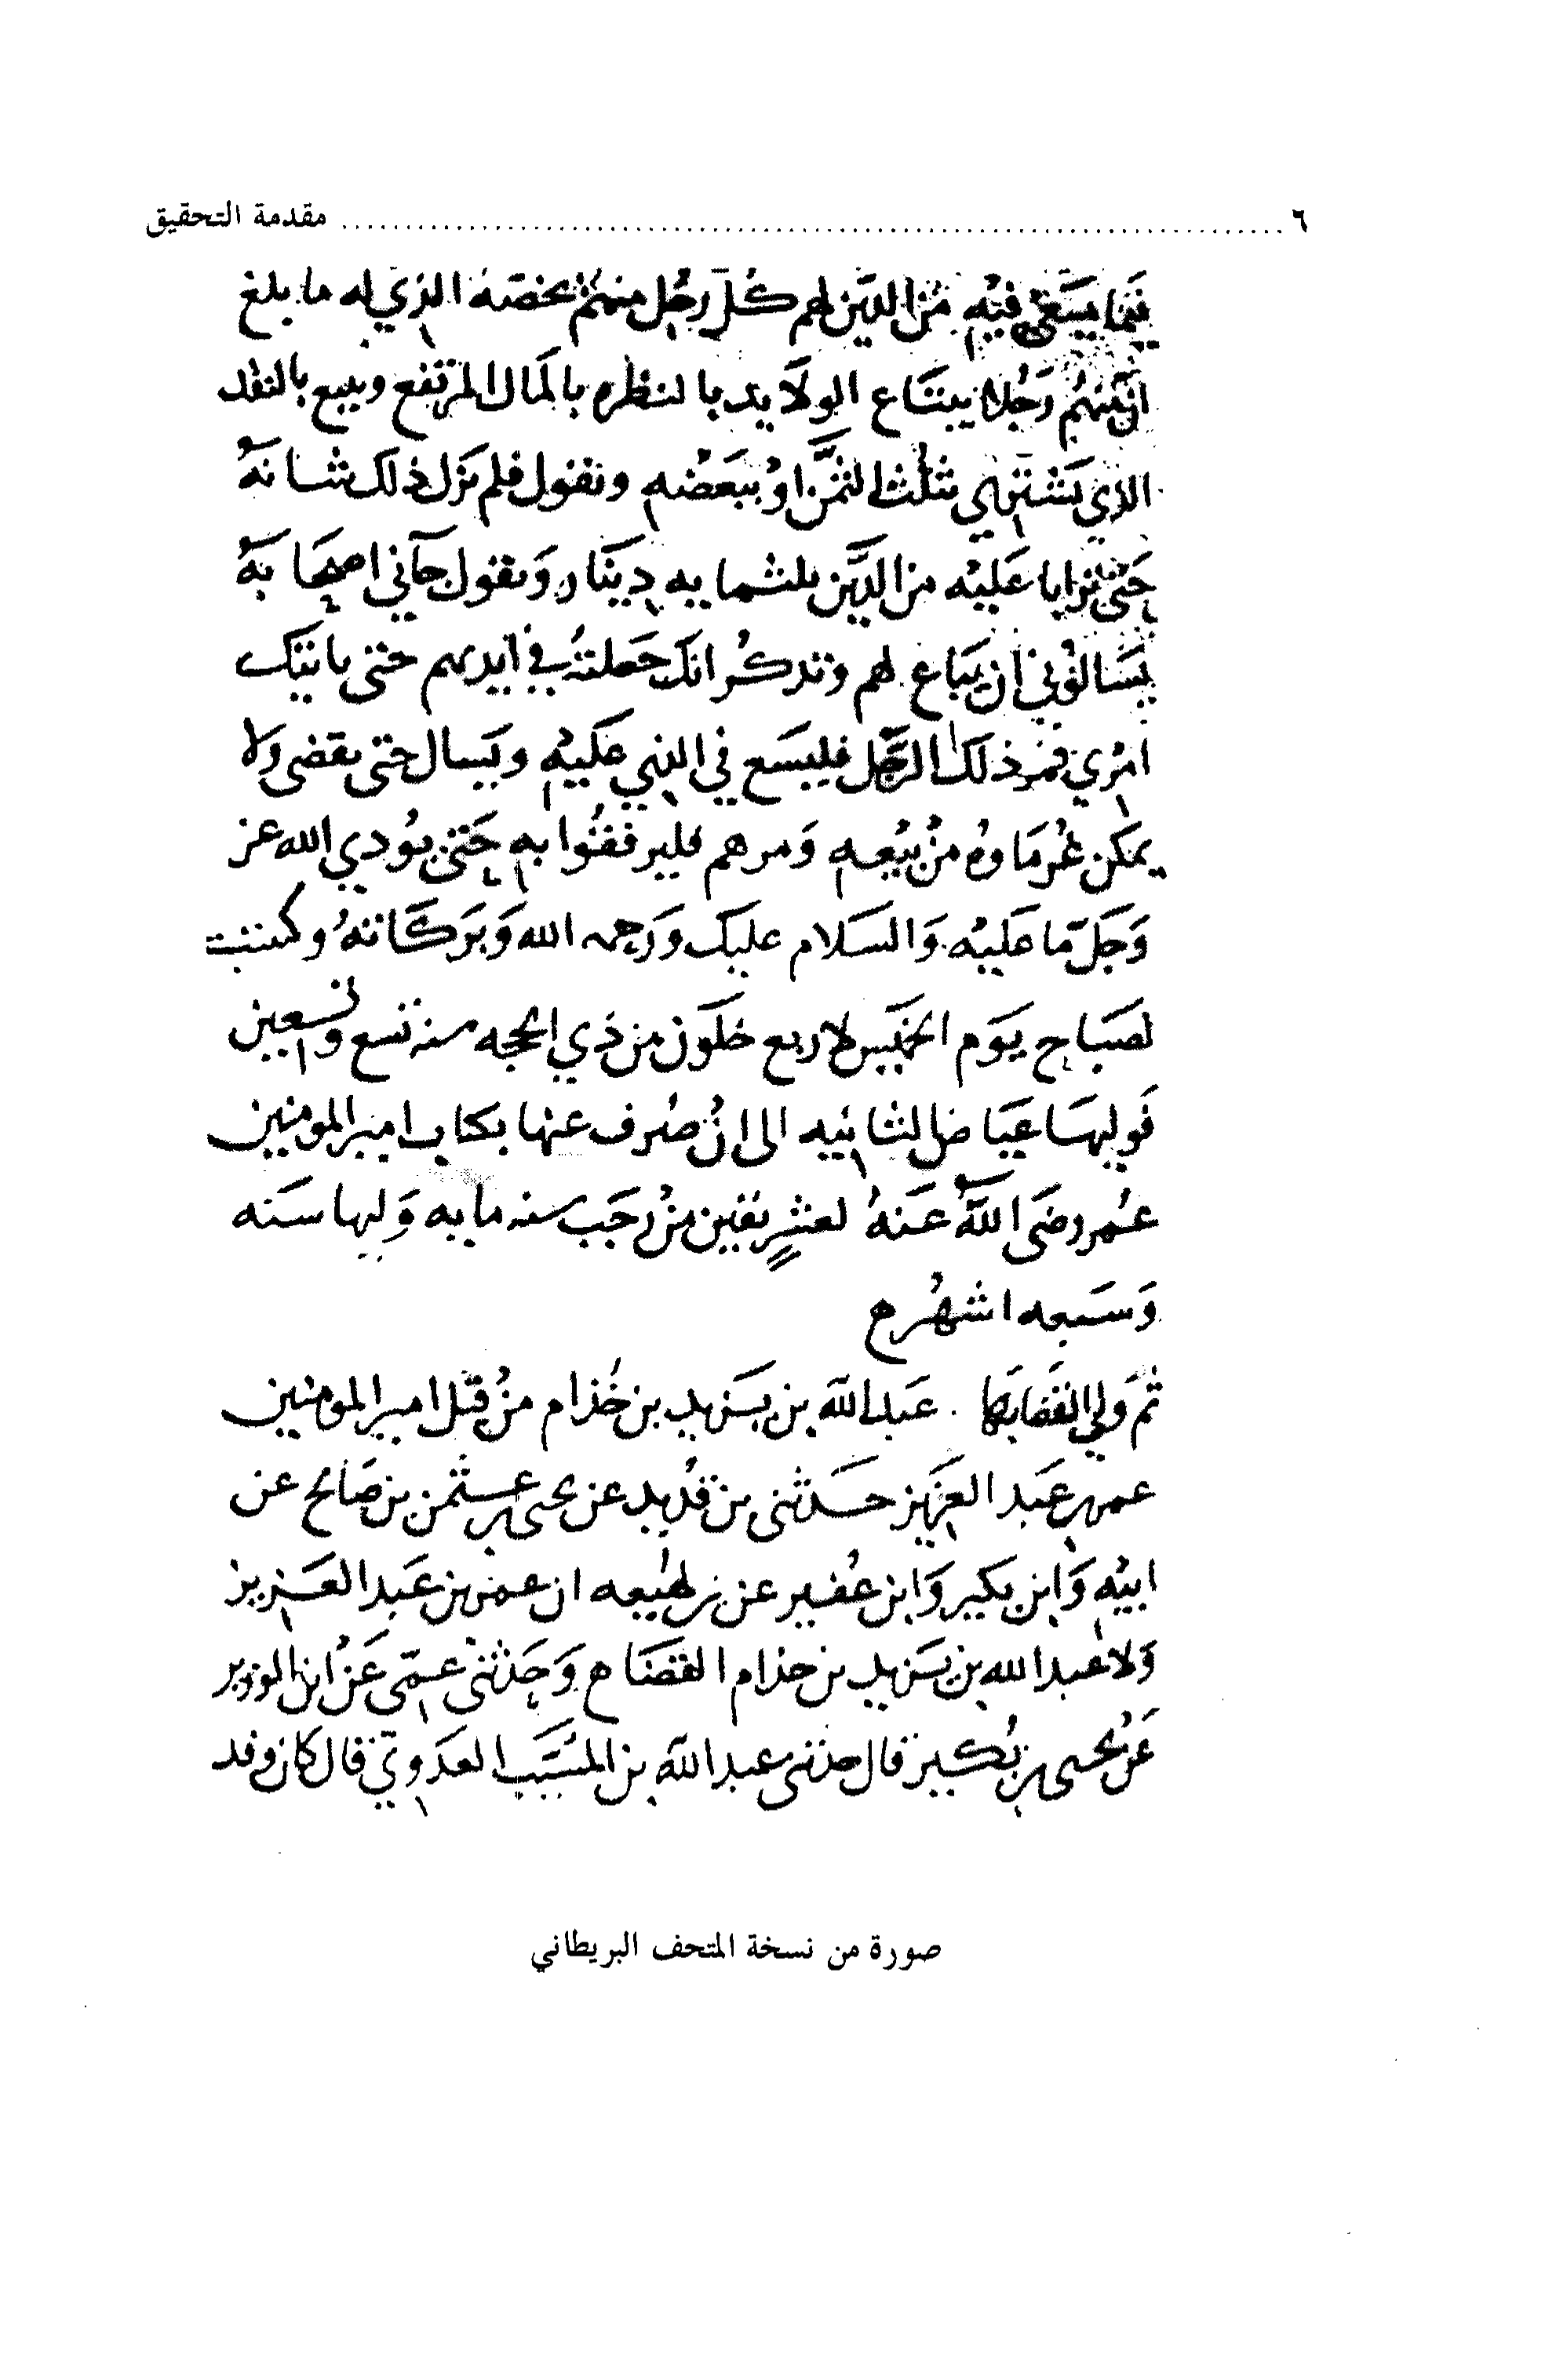 ٦ ........ مقدمة التحقيق
فيما يسعى فيه من الدين لهم كل رجل منهم بحصته الذي له ما بلغ
ان منهم رَجُلا يبتَاع الولَايد بالنظره بالمَال المرتفع ويبيع بالنقد
الذي يَشتري بثلُث الثمَّن اوْ ببَعَضْه ونقول فلم يَزل ذلك شانهُ
حَتى عَليْه من الدَّين ثلثمايه دِينَار وَيقول جآني اصحَابهُ
يَسَالوْني ان يُبَاع لهم وتذكُر انك جَعلتهُ في ايديهم حتى ياتيَك
امْري فمر ذلكَ الرَّجُل فليسَع في الذي عَليْه ويَسال حتى يقضى وَلا
يمَكن غُرمَاوهُ منْ بيْعه وَمرهم فليرفقُوا به حَتى يوُدي الله عز
وَجَلّ ما عَليْه وَالسَلام عليَك وَرَحمه الله وَبَرَكَاتهُ وكتبت
لصَبَاح يَوَم الخمَيس لاربع خلَون من ذي الحجه سنه تسع وتسعين
فوليهَا عيَاض الثانيه الى انْ صُرف عنها بكتاب امير المومنين
عُمر رضَى اللهُ عَنهُ لعشرٍ بقين منْ رجَب سنه مايه وَليها سَنه
وَسَبعه اشهُر ح
ثمَ وَلي القضَا بهَا . عَبد الله بن يَزيد بن خُذام منْ قبَل امير المومنين
عمر بن عَبد العَزيز حَدثنى بن قدُيد عن يحيى بن عثمن بن صَالح عن
ابيْه وَابن بكير وَابن عُفير عن بن لهيْعه ان عمر بن عَبد العَزيز
وَلاَ عبد الله بن يَزيد بن خذام القضَا ح وَحَدثنىْ عمّى عَنْ ابن الوزير
عَنْ يحيى بن بُكَير قال حدثنى عبد الله بن المسَيَّب العدَويّ قال كان وفد
صورة من نسخة المتحف البريطاني